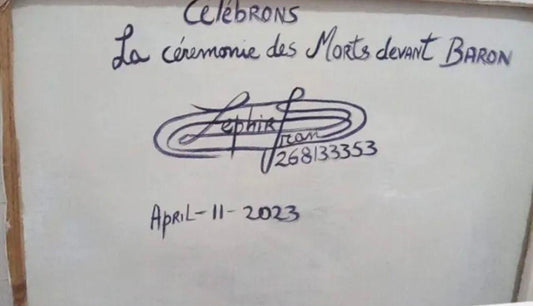 CelébRONS
La cérémonie des Morts devant BARON
Zephir
Jran
268133353
APRIL-11-2023